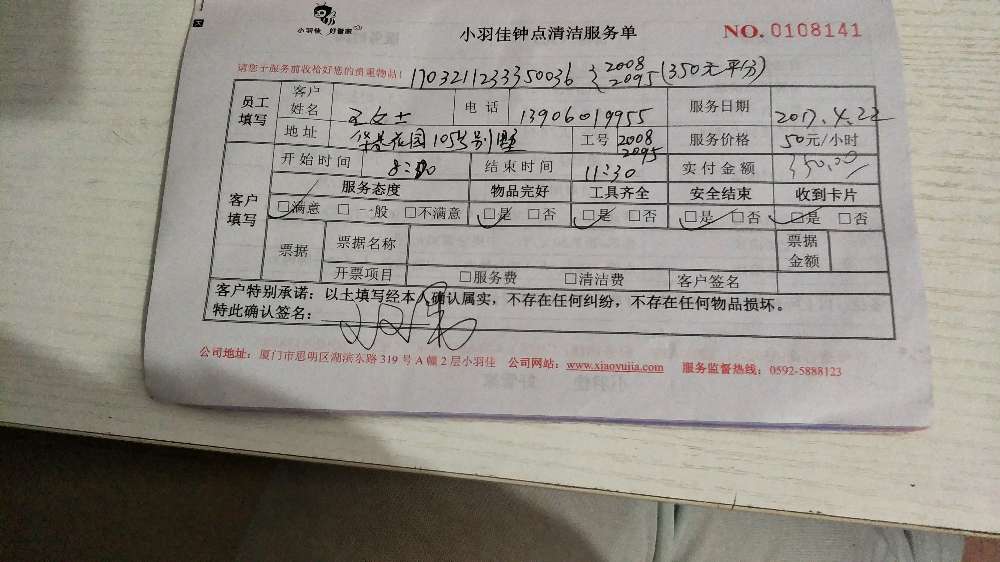 小羽佳 好管家
小羽佳钟点清洁服务单
NO. 0108141
请您于服务前收拾好您的贵重物品!
170321123350036 {2008 2095 (350元平分)
员工填写 客户姓名 王女士 电话 13906019955 服务日期 2017.4.22
地址 花园105号别墅 工号 2008 2095 服务价格 50元/小时
客户填写 开始时间 8:00 结束时间 11:30 实付金额 350.00
服务态度 物品完好 工具齐全 安全结束 收到卡片
□满意 □一般 □不满意 □是 □否 □是 □否 □是 □否 □是 □否
票据 票据名称 票据金额
开票项目 □服务费 □清洁费 客户签名
客户特别承诺：以上填写经本人确认属实，不存在任何纠纷，不存在任何物品损坏。
特此确认签名：
公司地址：厦门市思明区湖滨东路319号A幢2层小羽佳 公司网站：www.xiaoyujia.com 服务监督热线：0592-5888123